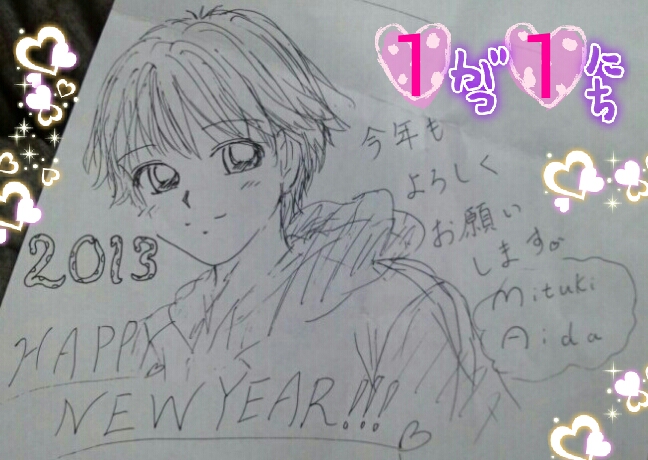 1がつ1にち
今年も
よろしく
お願い
します。
Mituki
Aida
2013
HAPPY
NEW YEAR!!!